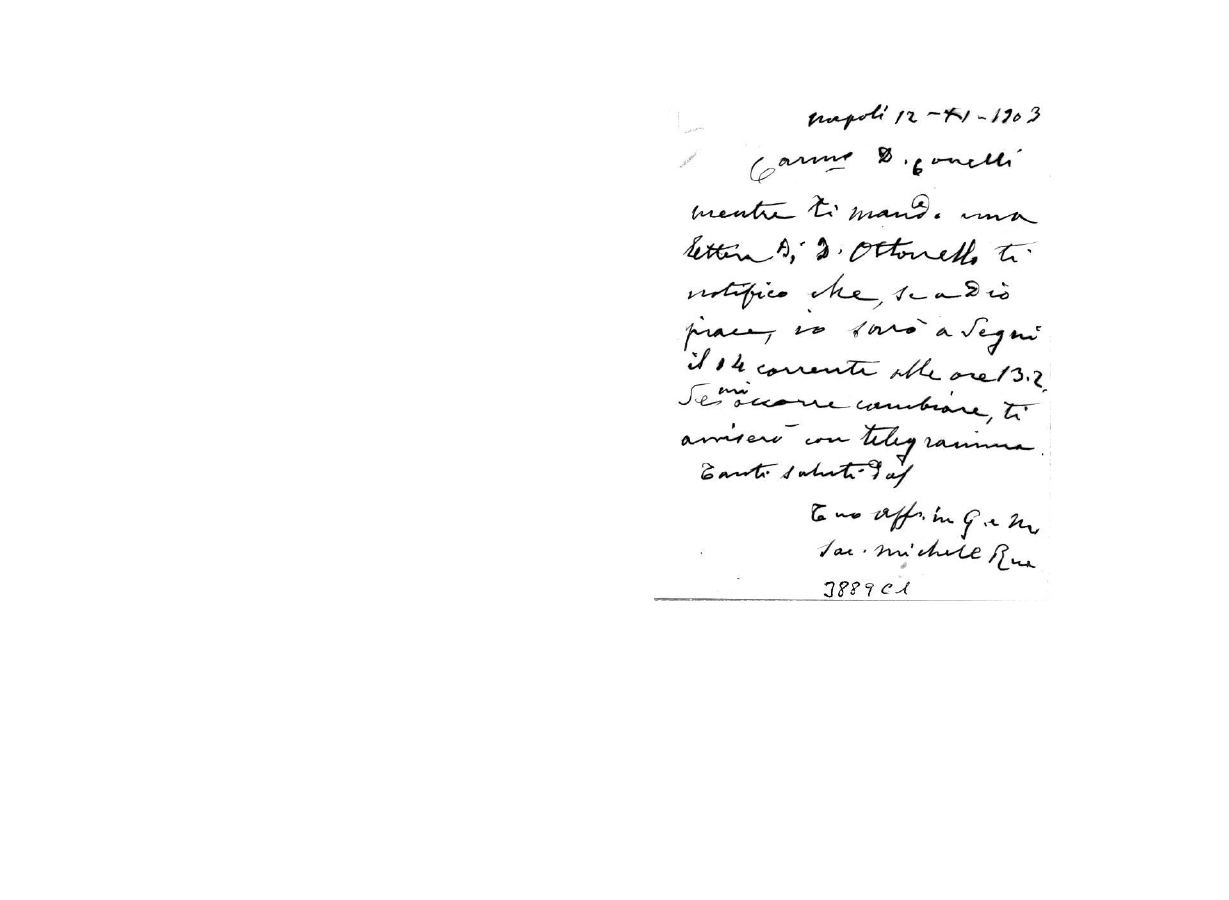 Napoli 12-XI-1903
Carmo D. Conelli
mentre ti mando una
lettera di D. Ottonello ti
notifico che, se a Dio
piace, io sarò a Segni
il 14 corrente alle ore 13.2.
Se mi occorre cambiare, ti
avviserò con telegramma.
Tanti saluti dal
Tuo aff. in G. e M.
Sac. Michele Rua
3889 C1